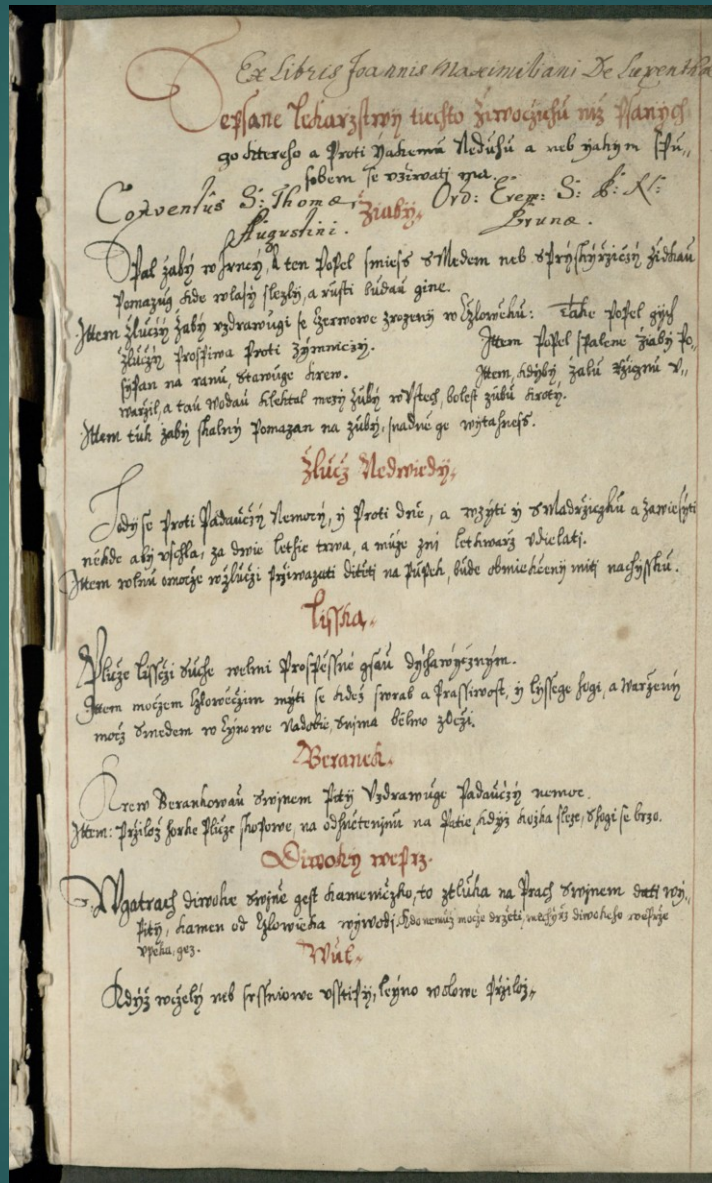 Ex Libris Joannis Maximiliani De Luxenthal
Sepsane lekarzstwy tiechto ziwocžichů niž psanych
go ktereho a Proti yakemu Neduhu a neb yakym spu„
sobem se vžiwati ma.
Conventûs S: Thomæ Ord: Erem: S: P:
Augustini. Brunæ.
Žiaby.
Spal žaby w hrncy, a ten Popel smiess s Medem neb s Pryskyržiczy židkau
Pomazug kde wlasy slezly, a růsti budau gine.
Ittem žlučzy žaby vzdrawugi se czerwowe zrozeny w Czlowěku: Také Popel gych
žlučzy Prospiwa Proti zymniczy. Ittem Popel spalene žiaby Po„
sypan na ranu, stawuge krew. Ittem, kdyby žabu Ržicznu v„
waržil, a tau wodau klektal mezy zuby w Vstech, bolest zubů kroty.
Ittem tuk žaby skalny Pomazan na zuby, snadně ge wytahness.
Žlucž Nedwiedy.
Hody se Proti Padauczy Nemocy, y Proti dně, a wzyti y s Madržiczku a zawiesyti
někde aby vschla, za dwie lethie trwa, a může zni lethwarž vdielati.
Ittem wlnu omocže w žlučzi Pržiwazati ditěti na Pupek, bude obmiekčeny miti
Lisska.
Pluže lissčzi suche welmi Prospěssné gsau dychawycznym.
Ittem močzem Czlowěčzim myti se kdež swrab a Prassiwost, y lyssege hogi, a warženy
močz s medem w Cynowe Nadobie, snima bělmo z Očzi.
Beranek.
Krew Berankowau s winem Pity Vzdrawuge Padaučzy nemoc.
Ittem: Pržilož horke Plicze skopowe, na odhnětenjnu na Patie, kdyz kožka sleze, shogi se brzo.
Diwoky weprz.
W gatrach diwoke swině gest kameniczko, to ztluka na Prach s winem dati wy„
Pity, kamen od Czlowieka wywodj. kdo nemuž močže držeti, mechyrž diwokeho weprže
vpeka, gez.
Wůl.
Když wčzely neb srssniowe vsstipy, leyno wolowe Pržilož„